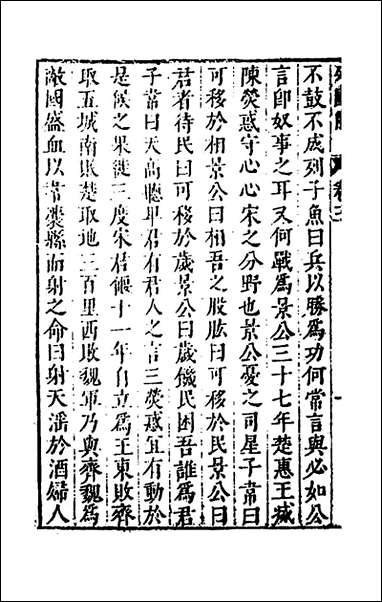 不鼓不成列子魚曰兵以勝爲功何常言與必如公
言卽奴事之耳又何戰爲景公三十七年楚惠王滅
陳熒惑守心心宋之分野也景公憂之司星子韋曰
可移於相景公曰相吾之股肱曰可移於民景公曰
君者待民曰可移於歲景公曰歲饑民困吾誰爲君
子韋曰天高聽卑君有君人之言三熒惑宜有動於
是候之果徙三度宋君偃十一年自立爲王東敗齊
取五城南敗楚取地三百里西敗魏軍乃與齊魏爲
敵國盛血以韋囊縣而射之命曰射天淫於酒婦人